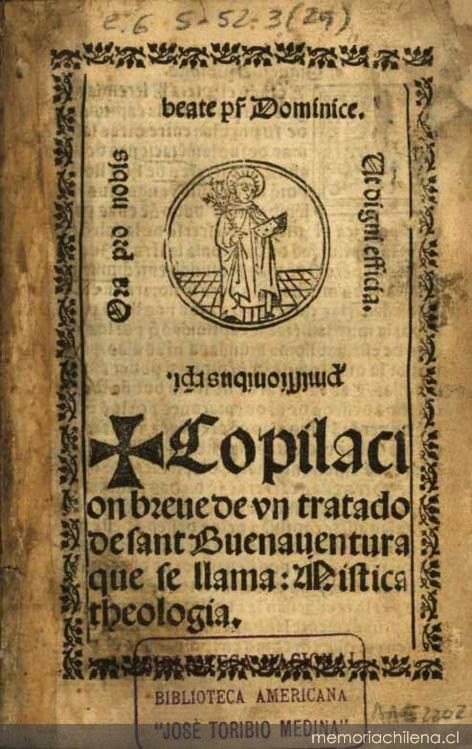 e.6 5-52-3(29)
beate pr̃ Dominice.
Ora pro nobis
Ut digni efficia.
pmissionibus xp̃i.
✠ Copilaci
on breue de vn tratado
de sant Buenauentura
que se llama: Mistica
theologia.
BIBLIOTECA NACIONAL
BIBLIOTECA AMERICANA
"JOSÉ TORIBIO MEDINA"
AAE2202
memoriachilena.cl